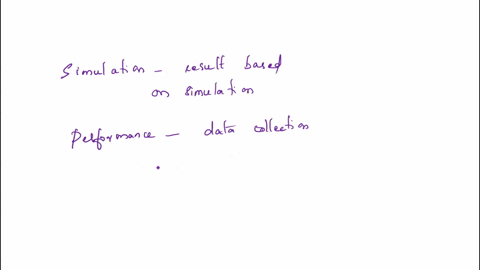 Simulation - result based
on simulation
Performance - data collection